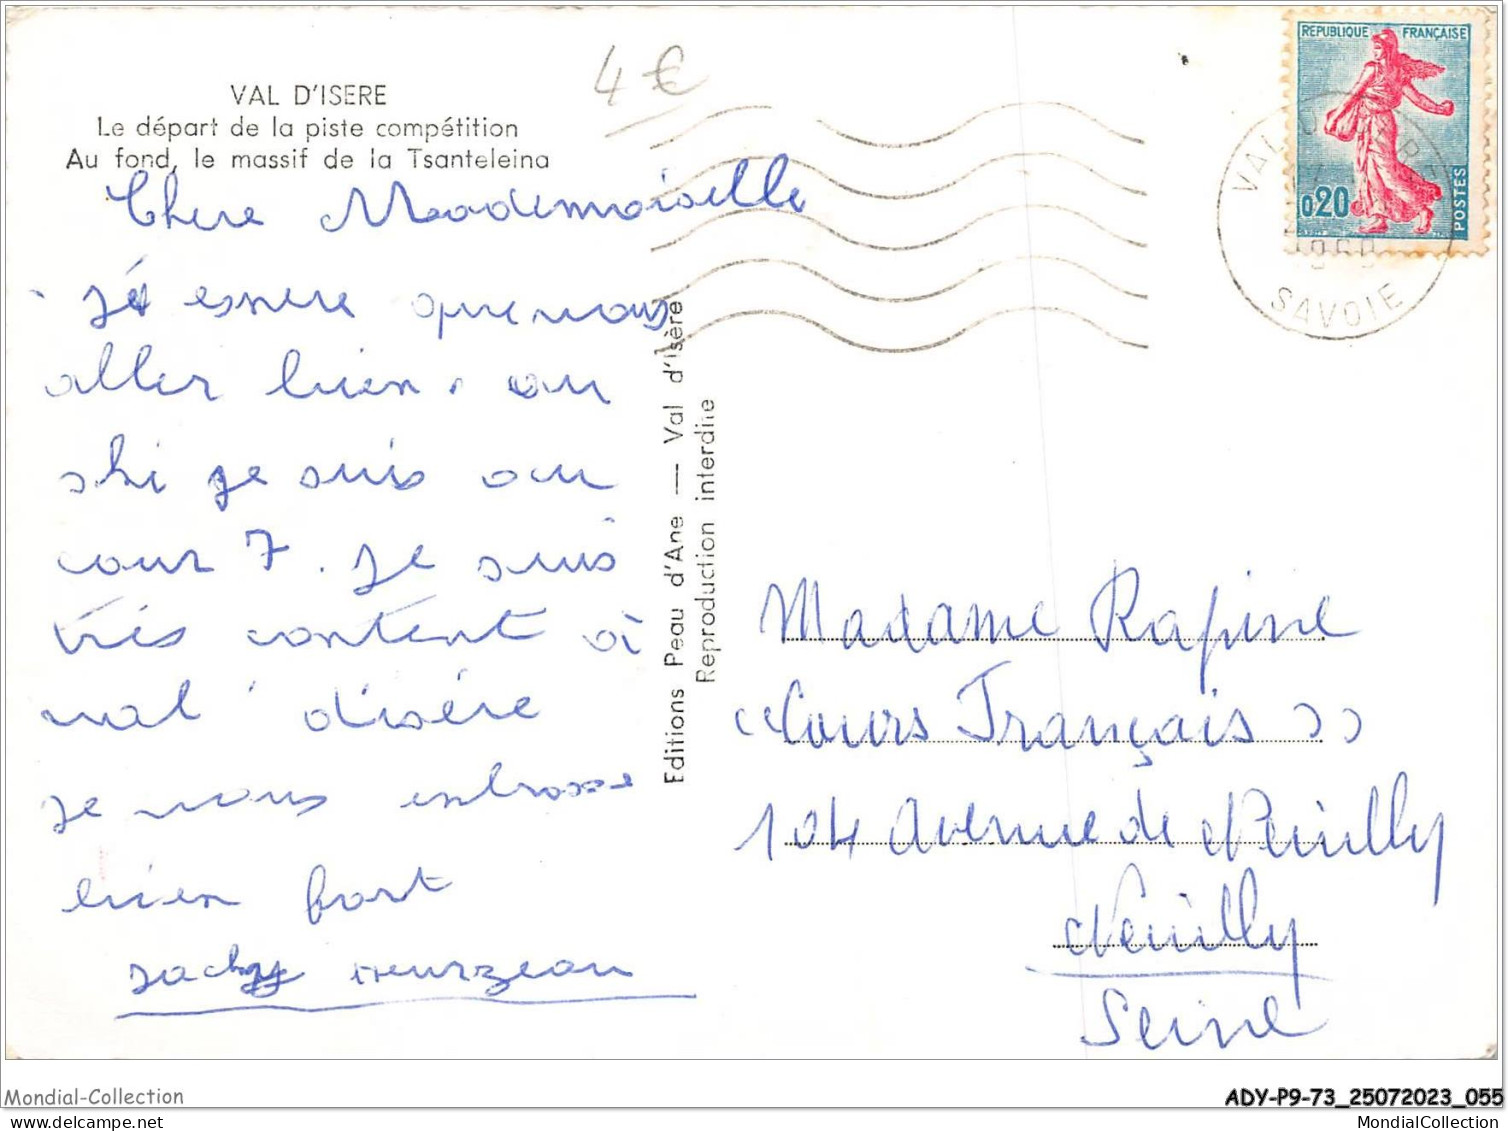 VAL D'ISERE
Le départ de la piste compétition
Au fond, le massif de la Tsanteleina
4 €
REPUBLIQUE FRANÇAISE
0,20
POSTES
VAL D'ISERE
1960
SAVOIE
Chere Mademoiselle
essere que vous
aller bien. au
ski je suis au
cour 7. je suis
très content à
val' d'isére
je vous
bien fort
jacky
Editions Peau d'Ane — Val d'Isère
Reproduction interdite
Madame Rapine
«Cours Français»
104 Avenue de Neuilly
Neuilly
Seine
Mondial-Collection
ADY-P9-73_25072023_055
All rights reserved
MondialCollection